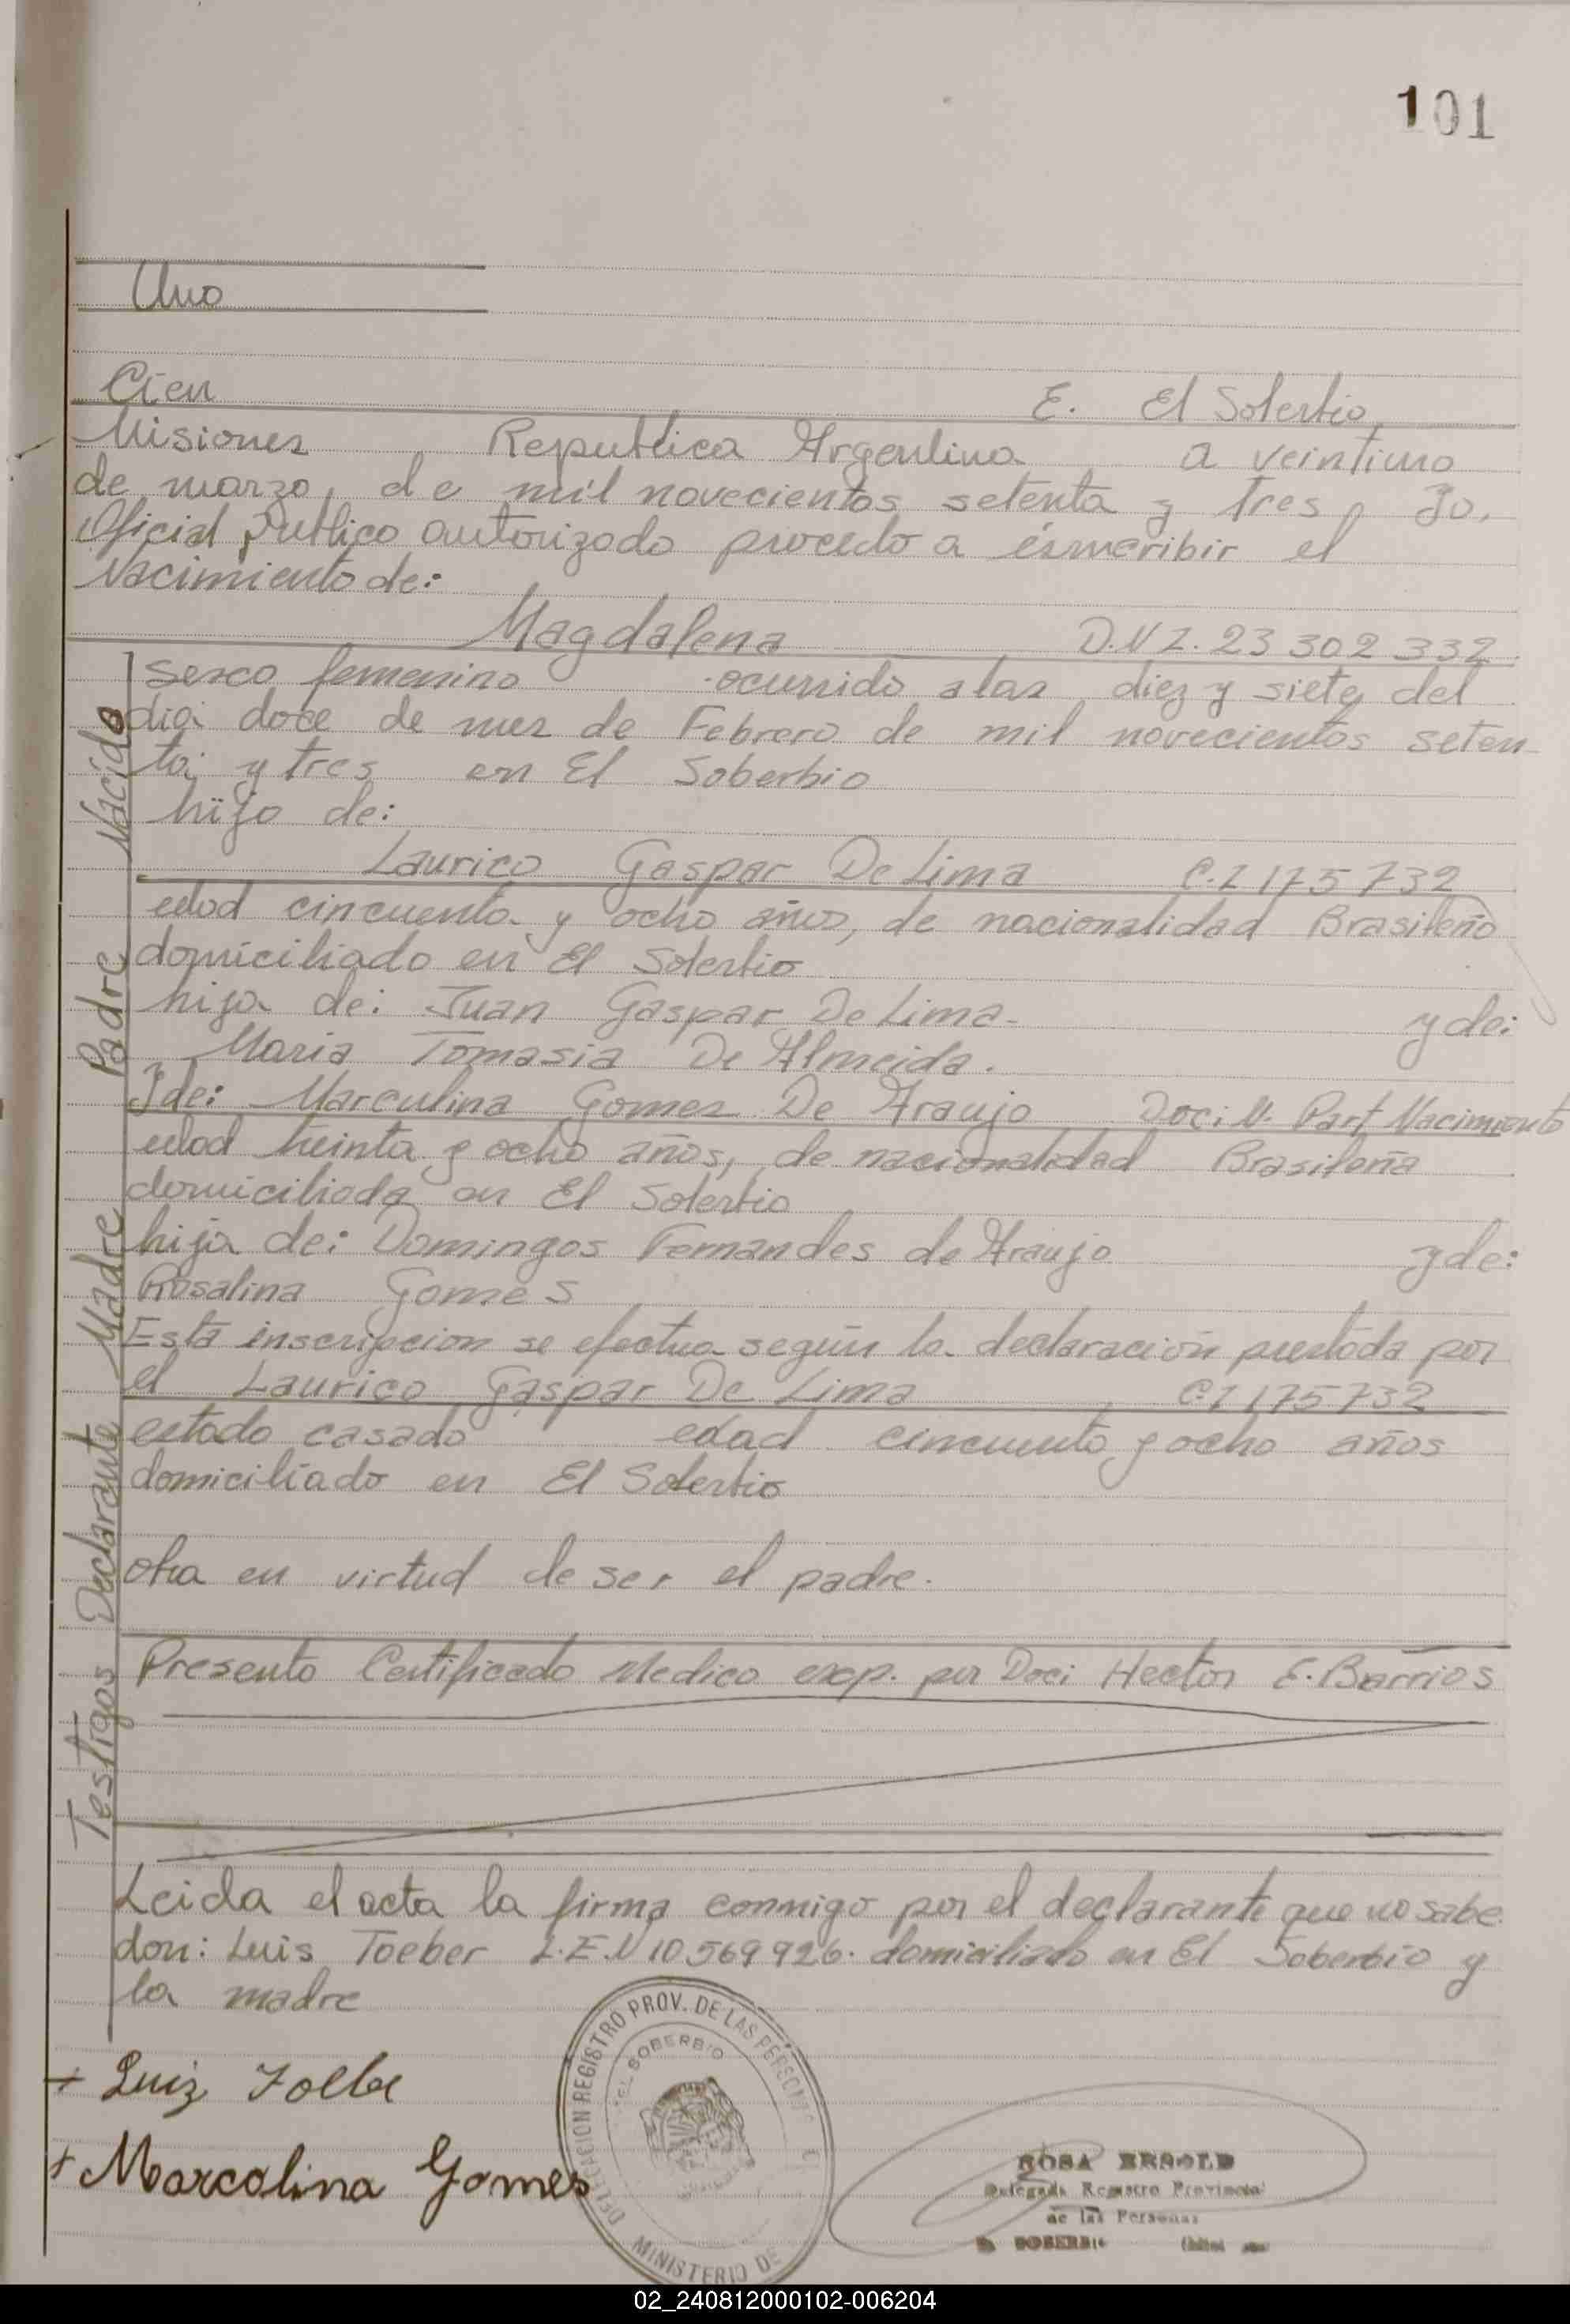 101
Uno
Cien E. El Soberbio
Misiones Republica Argentina a veintiuno
de marzo, de mil novecientos setenta y tres, Yo,
Oficial Publico autorizado procedo a inscribir el
Nacimiento de:
Magdalena D.N I. 23 302 332
sexo femenino ocurrido a las diez y siete del
dia doce de mes de Febrero de mil novecientos seten-
ta y tres en El Soberbio
hijo de:
Laurico Gaspar De Lima C.I 175 732
edad cincuenta y ocho años, de nacionalidad Brasileño
domiciliado en El Soberbio
hijo de: Juan Gaspar De Lima- y de:
Maria Tomasia De Almeida.
Y de: Marculina Gomes De Araujo Doc: N. Part Nacimiento
edad treinta y ocho años, de nacionalidad Brasileña
domiciliada en El Soberbio
hija de: Domingos Fernandes de Araujo y de:
Rosalina Gomes
Esta inscripcion se efectua según la declaración prestada por
el Laurico Gaspar De Lima C.I 175 732
estado casado edad cincuenta y ocho años
domiciliado en El Soberbio
obra en virtud de ser el padre.
Presento Certificado Medico exp. por Doc: Hector E. Barrios
Leida el acta la firma conmigo por el declarante que no sabe
don: Luis Toeber L.E.N 10 569 926. domiciliado en El Soberbio y
la madre
Nacido
Padre
Madre
Declarante
Testigos
+ Luiz
+ Marcolina Gomes
DELEGACION REGISTRO PROV. DE LAS PERSONAS
EL SOBERBIO
MINISTERIO DE
ROSA ERSOLD
Delegada Registro Provincial
de las Personas
SOBERBIO
02_240812000102-006204